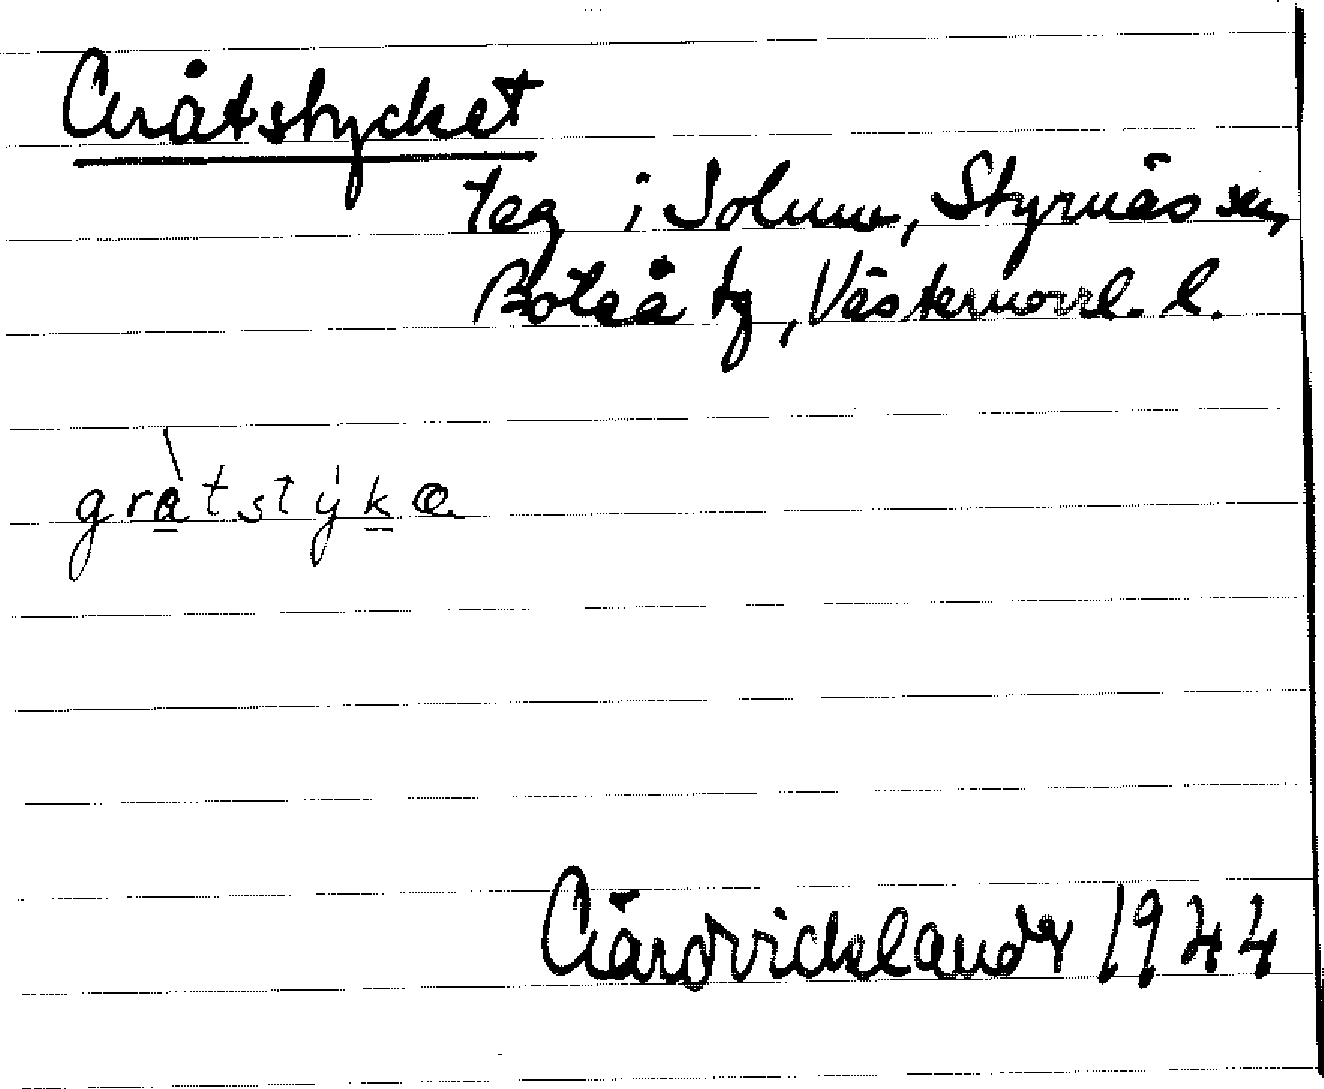 Gråtstycket
Teg i Solum, Styrnäs sn,
Boteå tg, Västernorrl. l.
gråtstýkə
Gårdvicklander 1944